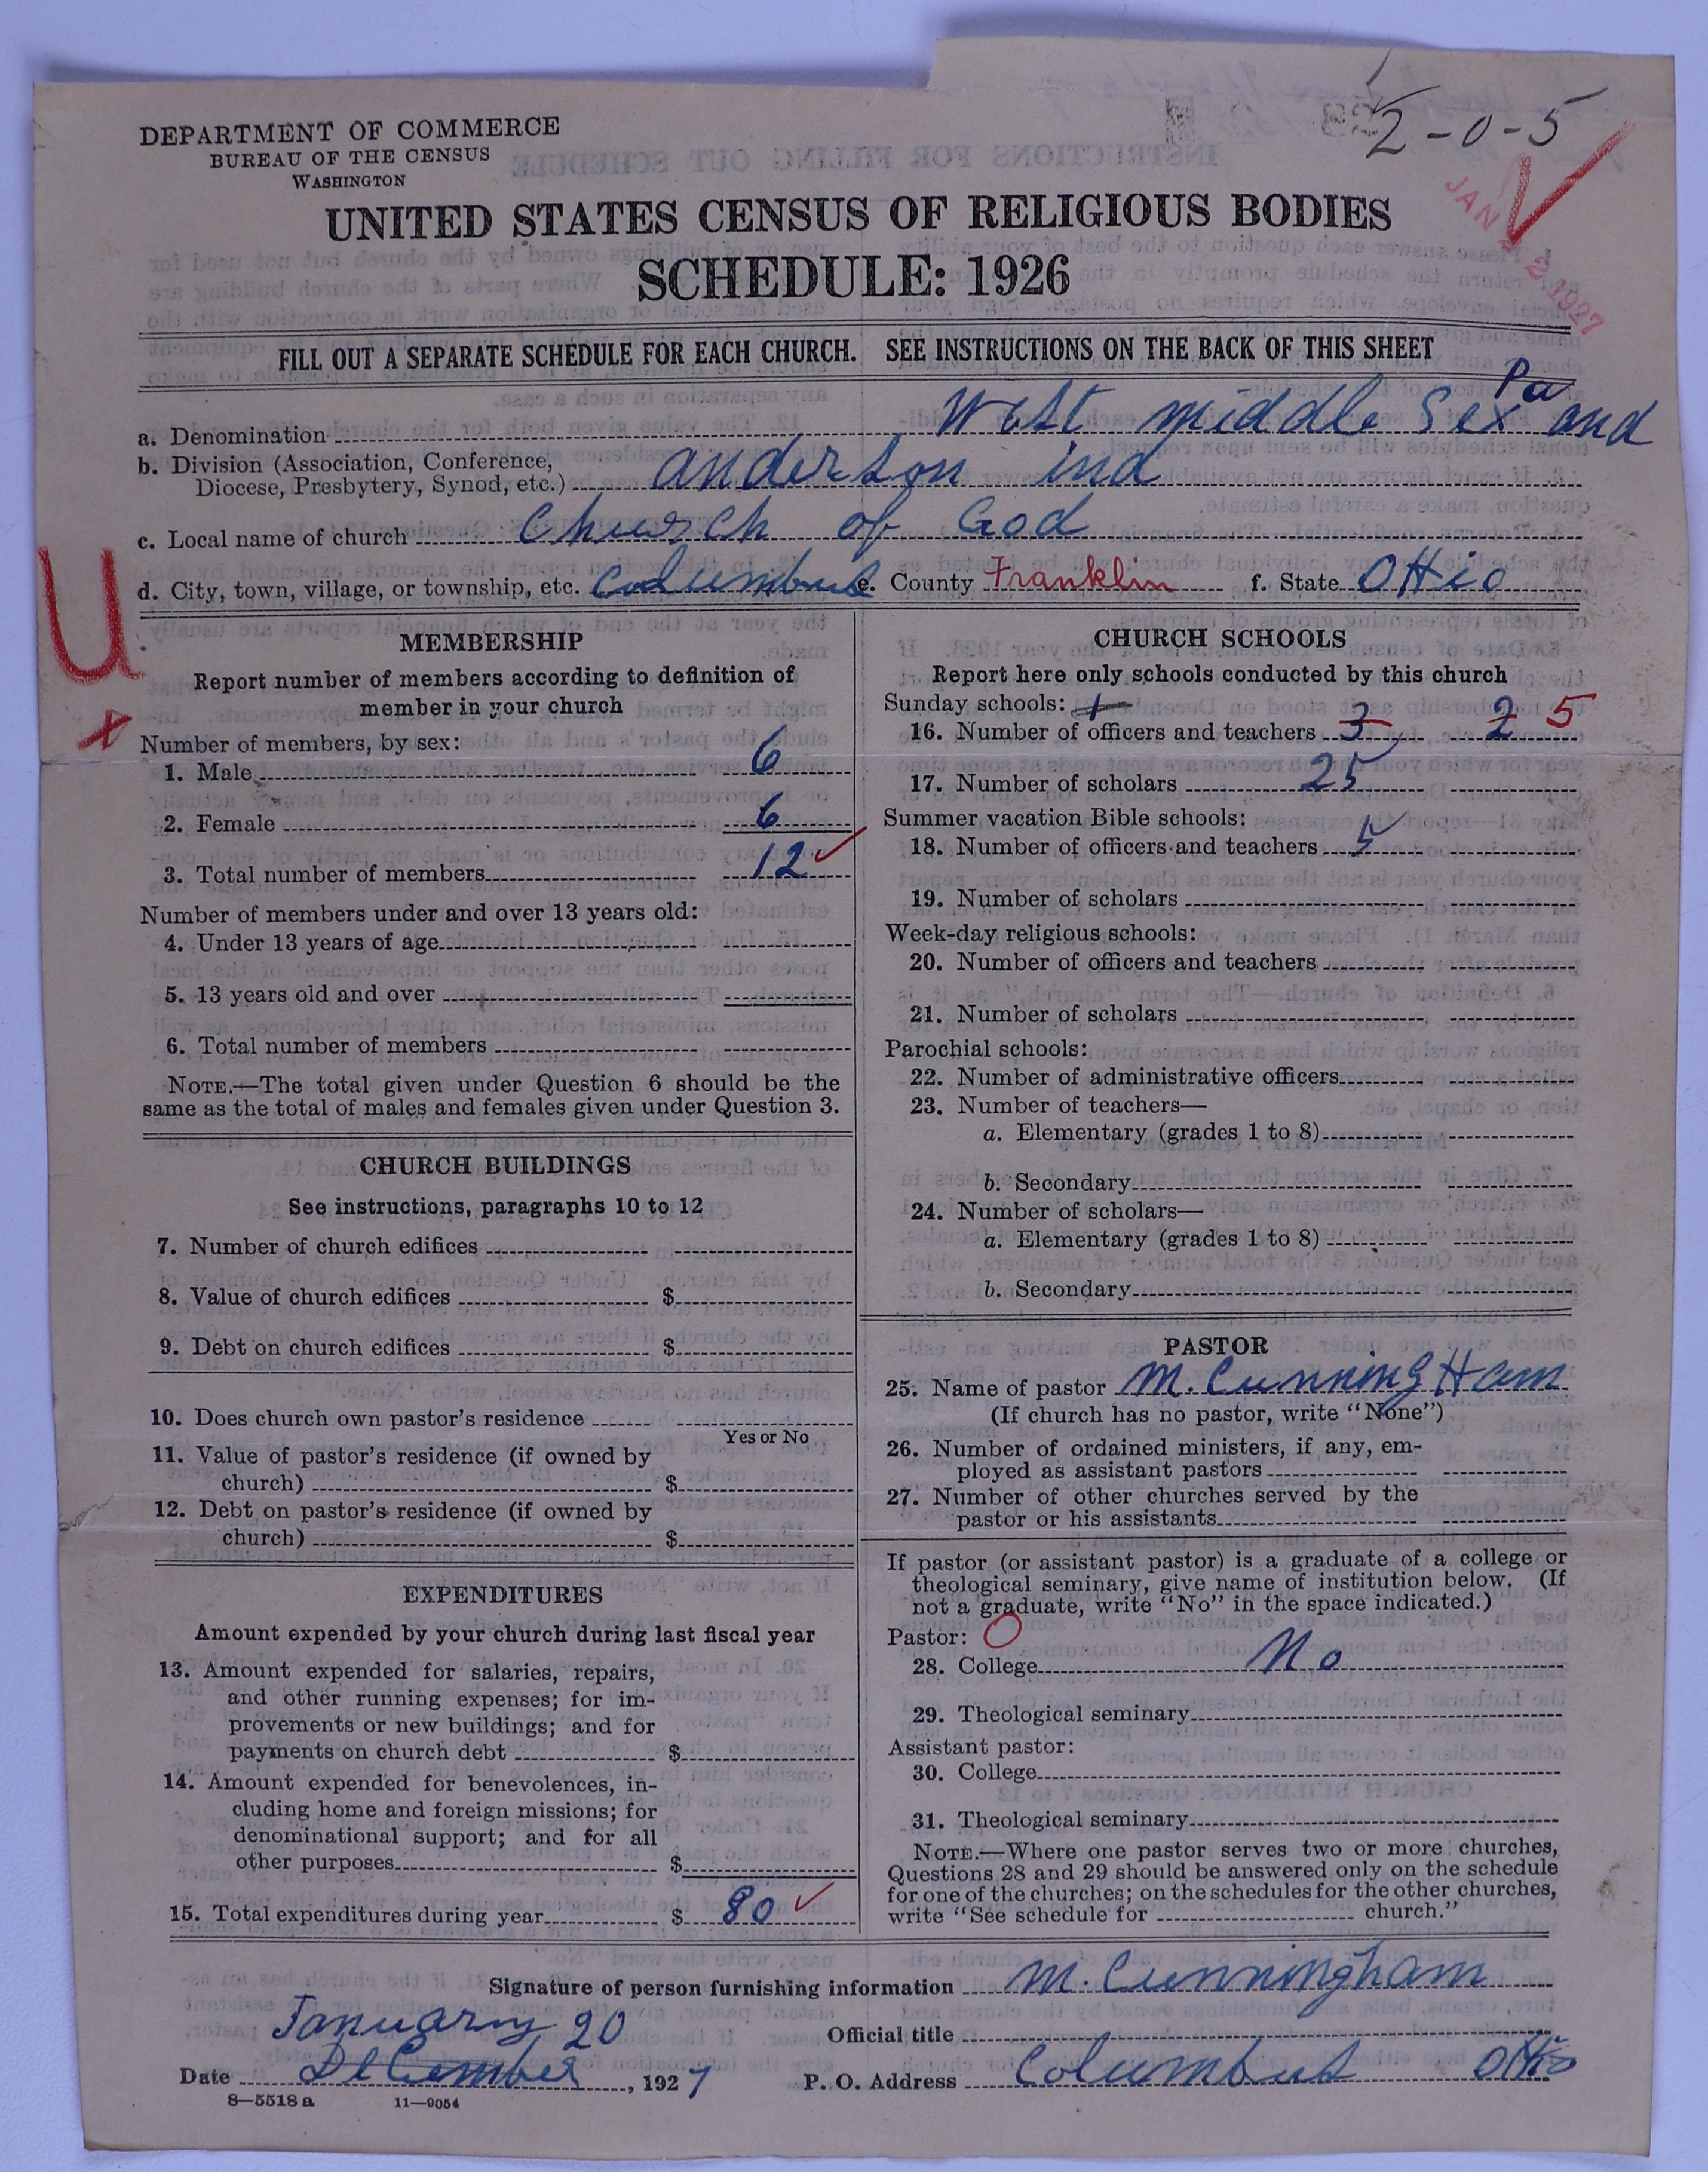 2-0-5
DEPARTMENT OF COMMERCE
BUREAU OF THE CENSUS
WASHINGTON
JAN 1927
UNITED STATES CENSUS OF RELIGIOUS BODIES
SCHEDULE: 1926
FILL OUT A SEPARATE SCHEDULE FOR EACH CHURCH. SEE INSTRUCTIONS ON THE BACK OF THIS SHEET
a. Denomination West middle Sex Pa and
b. Division (Association, Conference,
Diocese, Presbytery, Synod, etc.) anderson ind
c. Local name of church Church of God
d. City, town, village, or township, etc. Columbus e. County Franklin f. State OHio
U
x
MEMBERSHIP
Report number of members according to definition of
member in your church
Number of members, by sex:
1. Male 6
2. Female 6
3. Total number of members 12
Number of members under and over 13 years old:
4. Under 13 years of age
5. 13 years old and over
6. Total number of members
NOTE.—The total given under Question 6 should be the
same as the total of males and females given under Question 3.
CHURCH BUILDINGS
See instructions, paragraphs 10 to 12
7. Number of church edifices
8. Value of church edifices $
9. Debt on church edifices $
10. Does church own pastor's residence
Yes or No
11. Value of pastor's residence (if owned by
church) $
12. Debt on pastor's residence (if owned by
church) $
EXPENDITURES
Amount expended by your church during last fiscal year
13. Amount expended for salaries, repairs,
and other running expenses; for im-
provements or new buildings; and for
payments on church debt $
14. Amount expended for benevolences, in-
cluding home and foreign missions; for
denominational support; and for all
other purposes $
15. Total expenditures during year $ 80
CHURCH SCHOOLS
Report here only schools conducted by this church
Sunday schools: 1
16. Number of officers and teachers 3 2 5
17. Number of scholars 25
Summer vacation Bible schools:
18. Number of officers and teachers 5
19. Number of scholars
Week-day religious schools:
20. Number of officers and teachers
21. Number of scholars
Parochial schools:
22. Number of administrative officers
23. Number of teachers—
a. Elementary (grades 1 to 8)
b. Secondary
24. Number of scholars—
a. Elementary (grades 1 to 8)
b. Secondary
PASTOR
25. Name of pastor M. CunningHam
(If church has no pastor, write "None")
26. Number of ordained ministers, if any, em-
ployed as assistant pastors
27. Number of other churches served by the
pastor or his assistants
If pastor (or assistant pastor) is a graduate of a college or
theological seminary, give name of institution below. (If
not a graduate, write "No" in the space indicated.)
Pastor: O
28. College No
29. Theological seminary
Assistant pastor:
30. College
31. Theological seminary
NOTE.—Where one pastor serves two or more churches,
Questions 28 and 29 should be answered only on the schedule
for one of the churches; on the schedules for the other churches,
write "See schedule for church."
Signature of person furnishing information M. Cunningham
January 20
Official title
Date December, 1927 P. O. Address Columbus OHio
8—5518 a 11—9054